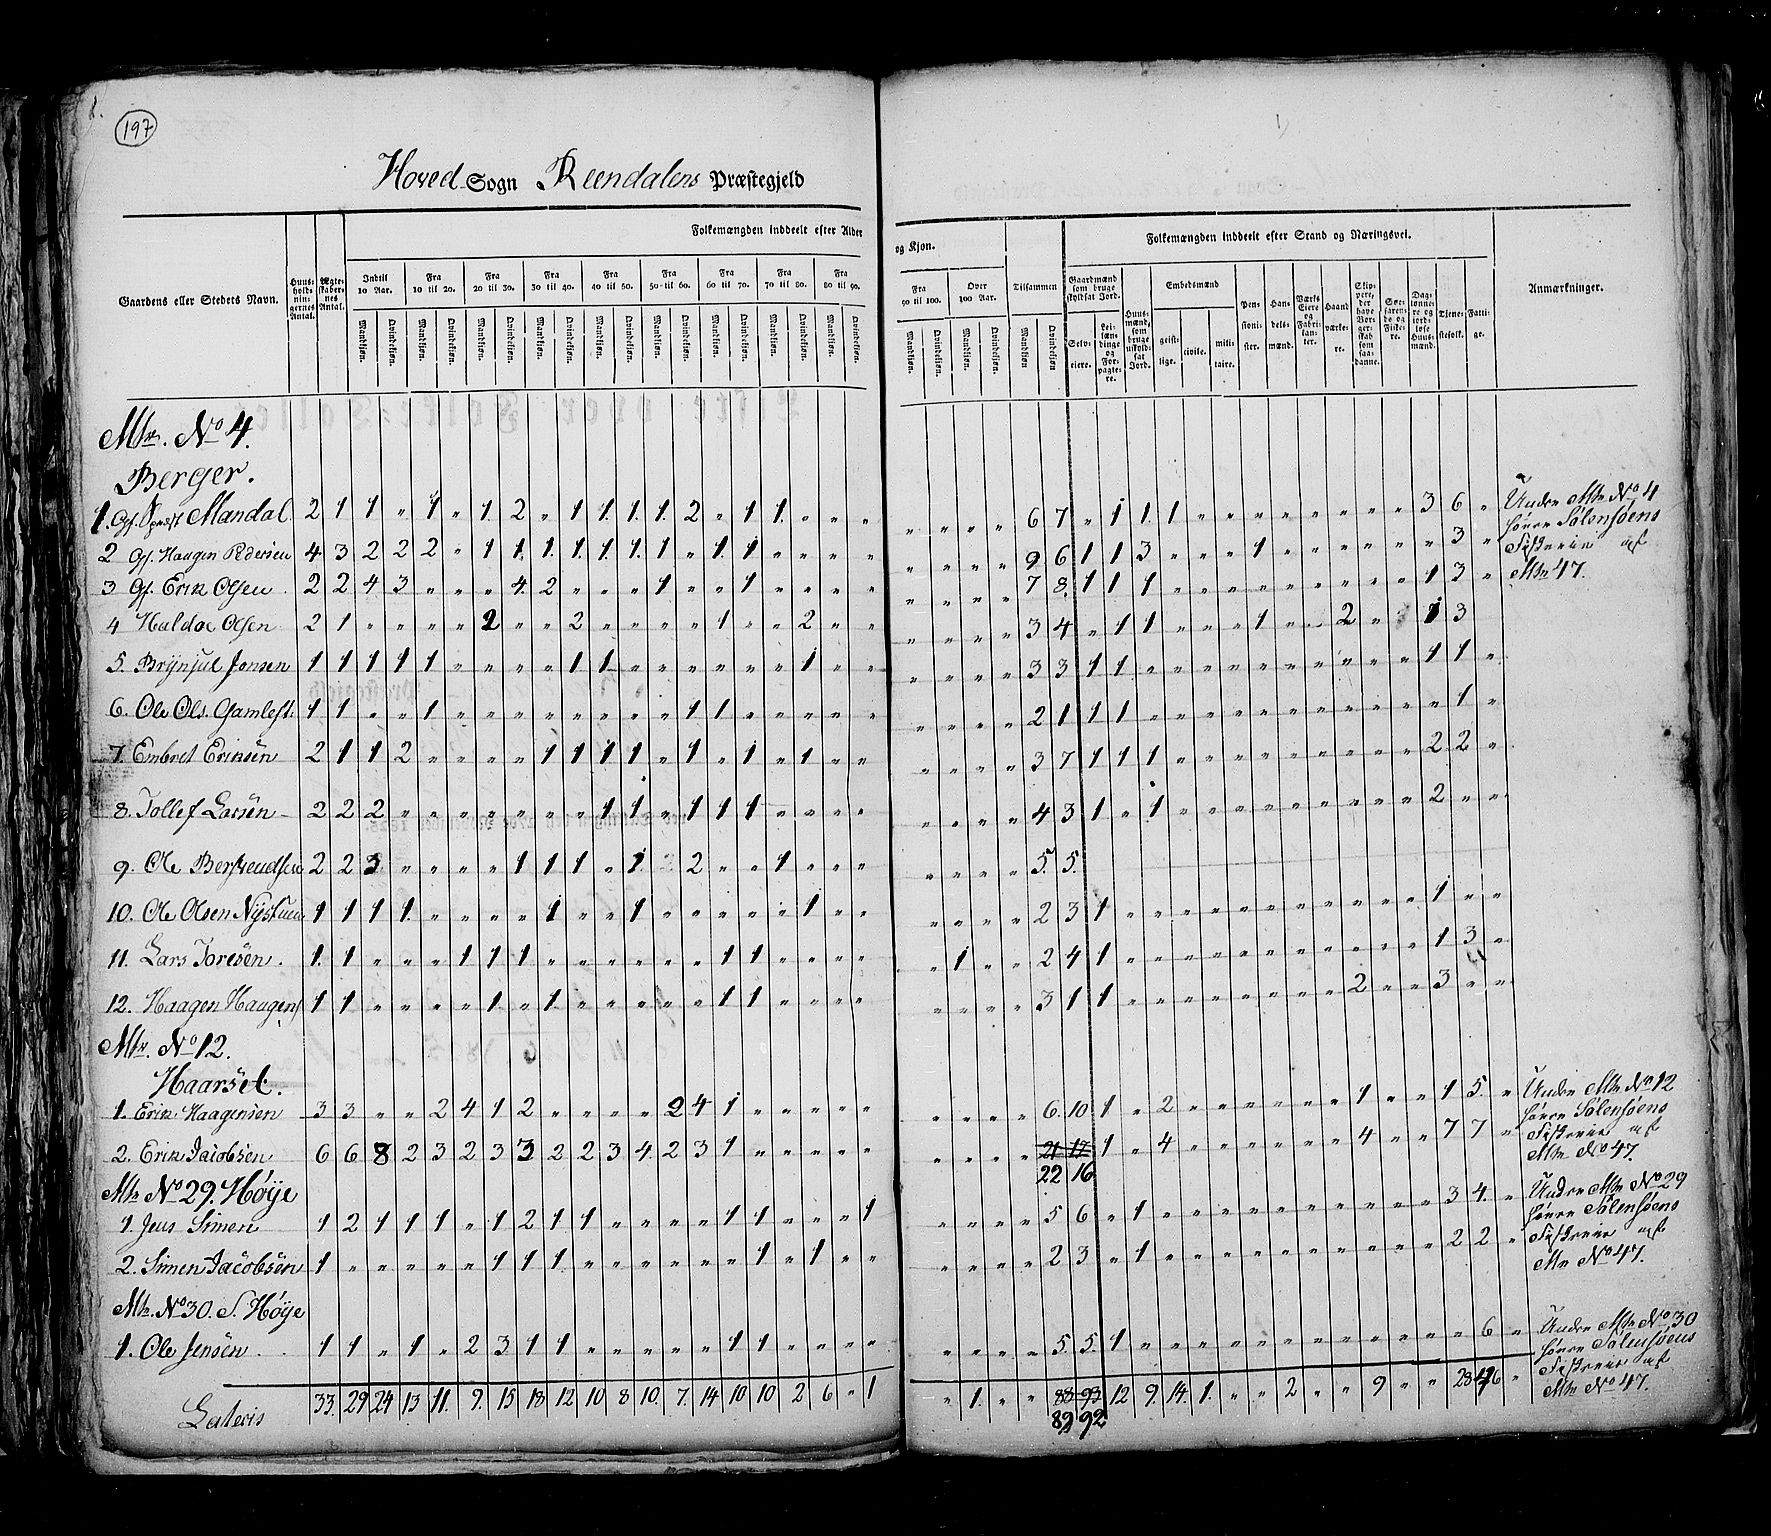 197
Hoved Sogn Reendalens Præstegjeld
Gaardens eller Stedets Navn.
Huusholdningernes Antal.
Ægteskabernes Antal.
Folkemængden inddeelt efter Alder og Kjøn.
Indtil 10 Aar.
Fra 10 til 20.
Fra 20 til 30.
Fra 30 til 40.
Fra 40 til 50.
Fra 50 til 60.
Fra 60 til 70.
Fra 70 til 80.
Fra 80 til 90.
Fra 90 til 100.
Over 100 Aar.
Tilsammen
Mandkjøn. Qvindekjøn.
Folkemængden inddeelt efter Stand og Næringsvei.
Gaardmænd som bruge skyldsat Jord.
Selveiere.
Leilændinge og Forpagtere.
Huusmænd, som bruge uskyldsat Jord.
Embedsmænd
geistlige.
civile.
militaire.
Pensionister.
Handelsmænd.
Værks Eiere og Fabrikanter.
Haandværkere.
Dagslønnere og jordløse Huusmænd.
Tjenestefolk.
Fattige.
Anmærkninger.
Mtr. No 4.
Berger.
1. Gf. Mandal 2 1 1 " 1 " 1 2 " 1 1 1 1 2 " 1 1 " " " " " " " 6 7 " 1 1 1 " " " " " " " " 3 6 "
2 Gf. Haagen Pedersen 4 3 2 2 2 " 1 1 1 1 1 1 1 " 1 1 " " " " " " " " 9 6 1 1 3 " " " 1 " " " " " " 3 "
3 Gf. Erik Olsen 2 2 4 3 " " " 4 2 " " " 1 " " 1 " " " " " " " " 7 8 1 1 1 " " " " " " " " " 1 3 "
4 Haldoe Olsen 2 1 " " " " 2 " " 2 " " " " 1 " " 2 " " " " " " 3 4 " 1 1 " " " 1 " " 2 " 1 3
5. Brynjul Jonsen 1 1 1 1 1 " " " " 1 1 " " " " " " 1 " " " " " " 3 3 1 1 " " " " " " " " " " 1 1 "
6. Ole Ols. Gamlest. 1 1 " " 1 " " " " " " " " 1 1 " " " " " " " " " 2 1 1 1 " " " " " " " " " " " 1 "
7 Embret Eriksen 2 1 1 2 " " " " 1 1 1 1 " 1 " 1 " 1 " " " " " " 3 7 1 1 1 " " " " " " " " " 2 2 "
8. Tollef Larsen 2 2 2 " " " " " " " 1 1 " 1 1 1 " " " " " " " " 4 3 1 " 1 " " " " " " " " " 2 " "
9. Ole 2 2 3 " " " " 1 1 1 " 1 2 " " 1 " " " " " " " 5. 5.
10. Ole Olsen Nystuen 1 1 1 1 " " " " 1 " " 1 " " " " " 1 " " " " " " 2 3 1 " " " " " " " " " " " 1 " "
11. Lars Toresen. 1 1 " " " 1 1 1 " " " " " " 1 1 " " " " " 1 " " 2 4 1 " " " " " " " " " " " 1 3 "
12. Haagen Haagens 1 1 " " " " 1 " 1 " " " " " 1 1 " " " " " " " " 3 1 1 " " " " " " " " 2 " " 3 " "
Mtr. No 12.
Haarset.
1. Erik Haagensen 3 3 " " 2 4 1 2 " " " " 2 4 1 " " " " " " " " " 6 10 1 " 2 " " " " " " 1 " " 1 5 "
2. Erik Jacobsen 6 6 8 2 3 2 3 3 2 2 3 4 2 3 1 " " " " " " " " " 21 17 1 " 4 " " " " " " 4 " " 7 7 "
22 16
Mtr No 29. Høye
1. Jens Simen 1 2 1 1 1 " 1 2 1 1 " " " " 1 1 " " " 1 " " " " 5 6 " 1 " " " " " " " " " " 3 4 "
2. Simen Jacobsen 1 " " " " " 1 1 1 " " " " " " 1 " 1 " " " " " " 2 3 " 1 " " " " " " " " " " 2 2 "
Mtr. No 30. S. Høye
1. Ole Jensen. 1 1 " 1 " 2 3 1 1 " " " " " 1 1 " " " " " " " " 5 5 1 " " " " " " " " " " " " 6 "
Lateris 33 29 24 13 11 9 15 18 12 10 8 10 7 14 10 10 2 6 " 1 " 1 " " 88 93 12 9 14 1 " " 2 " " 9 " " 28 46 "
89 92
Under Mtr No 4
hører Sølensøens
Fiskerie af
Mtr 47.
Under Mtr No 12
hører Sølensøens
Fiskerie af
Mtr No 47.
Under Mtr No 29
hører Sølensøens
Fiskerie af
Mtr No 47.
Under Mtr No 30
hører Sølensøens
Fiskerie af
Mtr No 47.